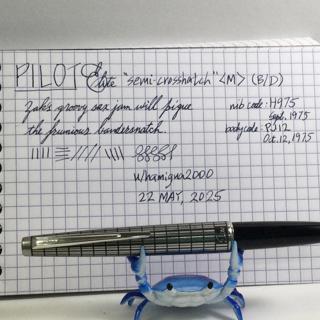 PILOT Elite "semi-crosshatch" <M> (B/D)
Zak's groovy sax jam will pique
the frumious bandersnatch.
nib code: H975
Sept. 1975
body code: PJ12
Oct. 12, 1975
u/hamigua2000
22 MAY, 2025